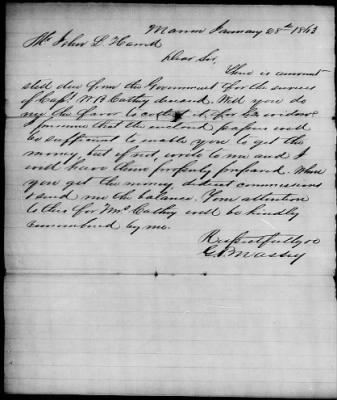 Marion January 28th 1863
Mr John L. Hamil
Dear Sir,
There is an amount
still due from the Government for the services
of Capt W B Cathey deceased. Will you do
me the favor to collect it for his widow.
I presume that the enclosed papers will
be sufficient to enable you to get the
money, but if not, write to me and I
will have them properly prepared. When
you get the money, deduct commissions
& send me the balance. Your attention
to this for Mrs Cathey will be kindly
remembered by me.
Respectfully &c
Massey